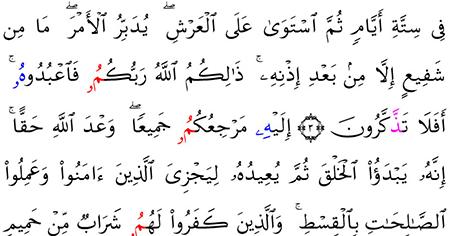 فِى سِتَّةِ أَيَّامٖ ثُمَّ ٱسْتَوَىٰ عَلَى ٱلْعَرْشِۖ يُدَبِّرُ ٱلْأَمْرَۖ مَا مِن
شَفِيعٍ إِلَّا مِنۢ بَعْدِ إِذْنِهِۦۚ ذَٰلِكُمُ ٱللَّهُ رَبُّكُمُۥ فَٱعْبُدُوهُۥۚ
أَفَلَا تَذَّكَّرُونَ ۝٣ إِلَيْهِۦ مَرْجِعُكُمُۥ جَمِيعًاۖ وَعْدَ ٱللَّهِ حَقًّاۚ
إِنَّهُۥ يَبْدَؤُاْ ٱلْخَلْقَ ثُمَّ يُعِيدُهُۥ لِيَجْزِىَ ٱلَّذِينَ ءَامَنُواْ وَعَمِلُواْ
ٱلصَّٰلِحَٰتِ بِٱلْقِسْطِۚ وَٱلَّذِينَ كَفَرُواْ لَهُمُۥ شَرَابٌ مِّنْ حَمِيمٍ